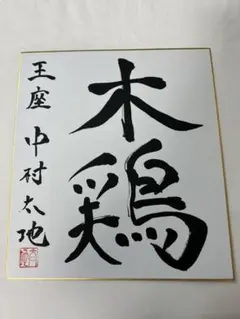 木鶏
王座 中村太地